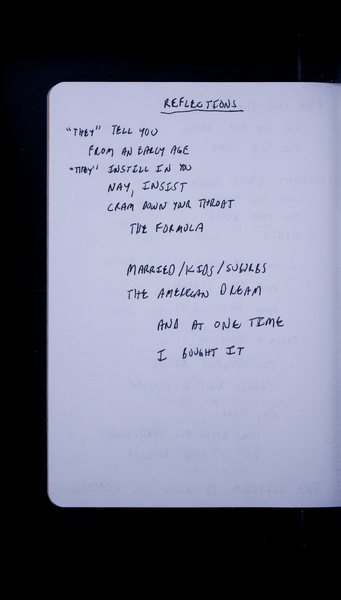 REFLECTIONS
"THEY" TELL YOU
FROM AN EARLY AGE
"THEY" INSTILL IN YOU
NAY, INSIST
CRAM DOWN YOUR THROAT
THE FORMULA
MARRIED/KIDS/SUBURBS
THE AMERICAN DREAM
AND AT ONE TIME
I BOUGHT IT